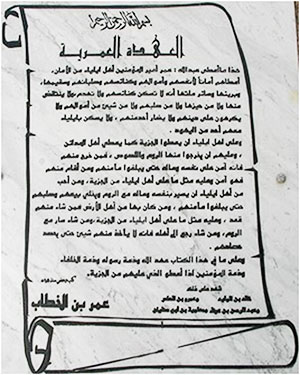 بسم الله الرحمن الرحيم
العهدة العمرية
هذا ما أعطى عبد الله : عمر أمير المؤمنين أهل ايلياء من الأمان.
أعطاهم أماناً لأنفسهم وأموالهم وكنائسهم وصلبانهم وسقيمها.
وبريئها وسائر ملتها أنه لا تسكن كنائسهم ولا تهدم ولا ينتقض
منها ولا من حيزها ولا من صلبهم ولا من شيئ من أموالهم ولا
يكرهون على دينهم ولا يضار أحدمنهم . ولا يسكن بايلياء
معهم أحد من اليهود .
وعلى أهل ايلياء أن يعطوا الجزية كما يعطي أهل المدائن
. وعليهم أن يخرجوا منها الروم واللصوص . فمن خرج منهم
فإنه آمن على نفسه وماله حتى يبلغوا مأمنهم ومن أقام منهم
فهو آمن وعليه مثل ما على أهل ايلياء من الجزية. ومن أحب
من أهل ايلياء أن يسير بنفسه وماله مع الروم ويخلي بيعهم وصلبهم
حتى يبلغوا مأمنهم . ومن كان بها من أهل الأرض فمن شاء منهم
قعد . وعليه مثل ما على أهل ايلياء من الجزية. ومن شاء سار مع
الروم . ومن شاء رجع إلى أهله فإنه لا يأخذ منهم شيئ حتى يحصد
حصادهم .
وعلى ما في هذا الكتاب عهد الله وذمة رسوله وذمة الخلفاء.
وذمة المؤمنين اذا أعطوا الذي عليهم من الجزية.
شهد على ذلك
خالد بن الوليد وعمرو بن العاص
عبد الرحمن بن عوف ومعاوية بن أبي سفيان
عمر بن الخطاب